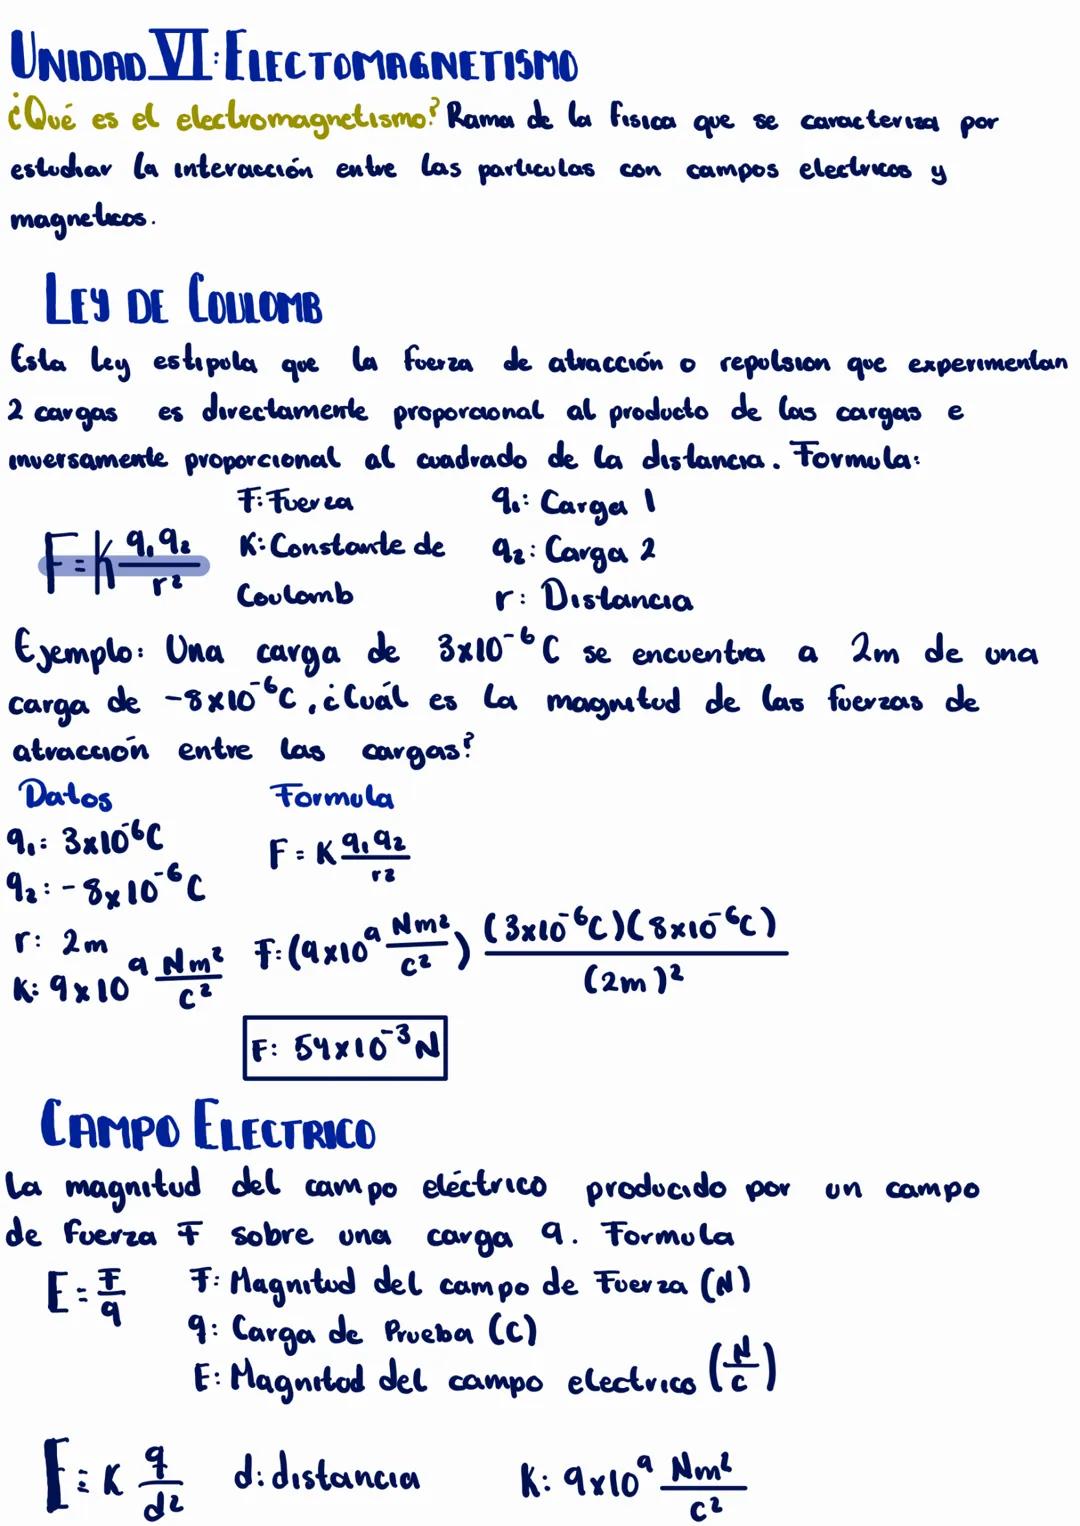 UNIDAD VI: ELECTOMAGNETISMO
¿Qué es el electromagnetismo? Rama de la fisica que se caracteriza por
estudiar la interacción entre las particulas con campos electricos y
magneticos.
LEY DE COULOMB
Esta ley estipula que la fuerza de atracción o repulsion que experimentan
2 cargas es directamente proporcional al producto de las cargas e
inversamente proporcional al cuadrado de la distancia. Formula:
F: Fuerza q₁: Carga 1
F=K q₁q₂/r² K: Constante de q₂: Carga 2
Coulomb r: Distancia
Ejemplo: Una carga de 3x10⁻⁶C se encuentra a 2m de una
carga de -8x10⁻⁶C, ¿Cuál es la magnitud de las fuerzas de
atracción entre las cargas?
Datos Formula
q₁: 3x10⁻⁶C F=K q₁q₂/r²
q₂: -8x10⁻⁶C
r: 2m F:(9x10⁹ Nm²/C²) (3x10⁻⁶C)(8x10⁻⁶C)/(2m)²
K: 9x10⁹ Nm²/C²
F: 54x10⁻³N
CAMPO ELECTRICO
La magnitud del campo eléctrico producido por un campo
de fuerza F sobre una carga q. Formula
E=F/q F: Magnitud del campo de Fuerza (N)
q: Carga de Prueba (C)
E: Magnitud del campo electrico (N/C)
E=K q/d² d: distancia K: 9x10⁹ Nm²/C²